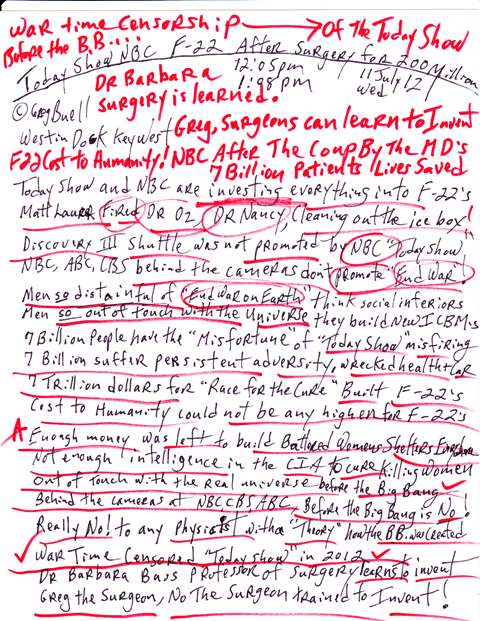 War time Censorship → Of The Today Show
Before the B.B....
Today Show NBC F-22 After Surgery for 200 Million
Dr Barbara 12:05pm 11 July 12
Surgery is learned. 1:98pm Wed
© Greg Buell
Westin Dock Key West Greg, Surgeons can learn to Invent
F22 Cost to Humanity! NBC After The Coup By The MD's
7 Billion Patients Lives Saved
Today Show and NBC are investing everything into F-22's
Matt Lauer Fired Dr Oz Dr Nancy, Cleaning out the ice box!
Discovery III Shuttle was not promoted by NBC "Today Show"
NBC, ABC, CBS behind the cameras don't promote "End War!
Men so distainful of "End War on Earth" think social inferiors
Men so out of touch with the Universe they build New ICBM's
7 Billion People have the "Misfortune" of "Today Show" misfiring
7 Billion suffer persistent adversity, wrecked health car
7 Trillion dollars for "Race for the Cure" Built F-22's
Cost to Humanity could not be any higher for F-22's
A Enough money was left to build Battered Womens Shelters
Not enough intelligence in the CIA to cure killing women
Out of touch with the real universe before the Big Bang
Behind the cameras at NBC CBS ABC, Before the Big Bang is No!
Really No! to any physicist with a "Theory" how the BB was created
War Time Censored "Today Show" in 2012
Dr Barbara Bass Professor of Surgery learns to invent
Greg the Surgeon, No The Surgeon trained to Invent!